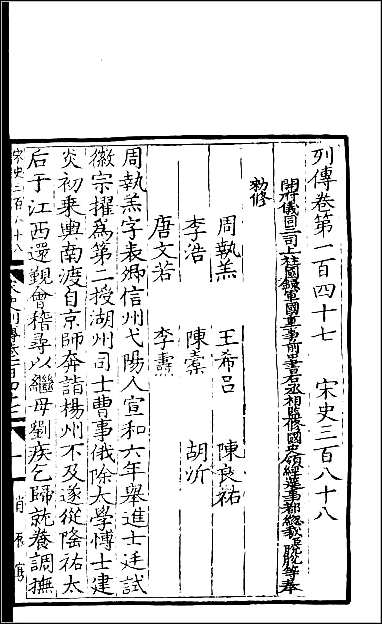 列傳卷第一百四十七 宋史三百八十八
開府儀同三司上柱國錄軍國重事前中書右丞相監修國史領經筵事都總裁臣脫脫等奉
勑修
周執羔 王希呂 陳良祐
李浩 陳橐 胡沂
唐文若 李燾
周執羔字表卿信州弋陽人宣和六年舉進士廷試
徽宗擢為第二授湖州司士曹事俄除太學博士建
炎初乘輿南渡自京師奔詣楊州不及遂從隆祐太
后于江西還覲會稽尋以繼母劉疾乞歸就養調撫
宋史三百八十八